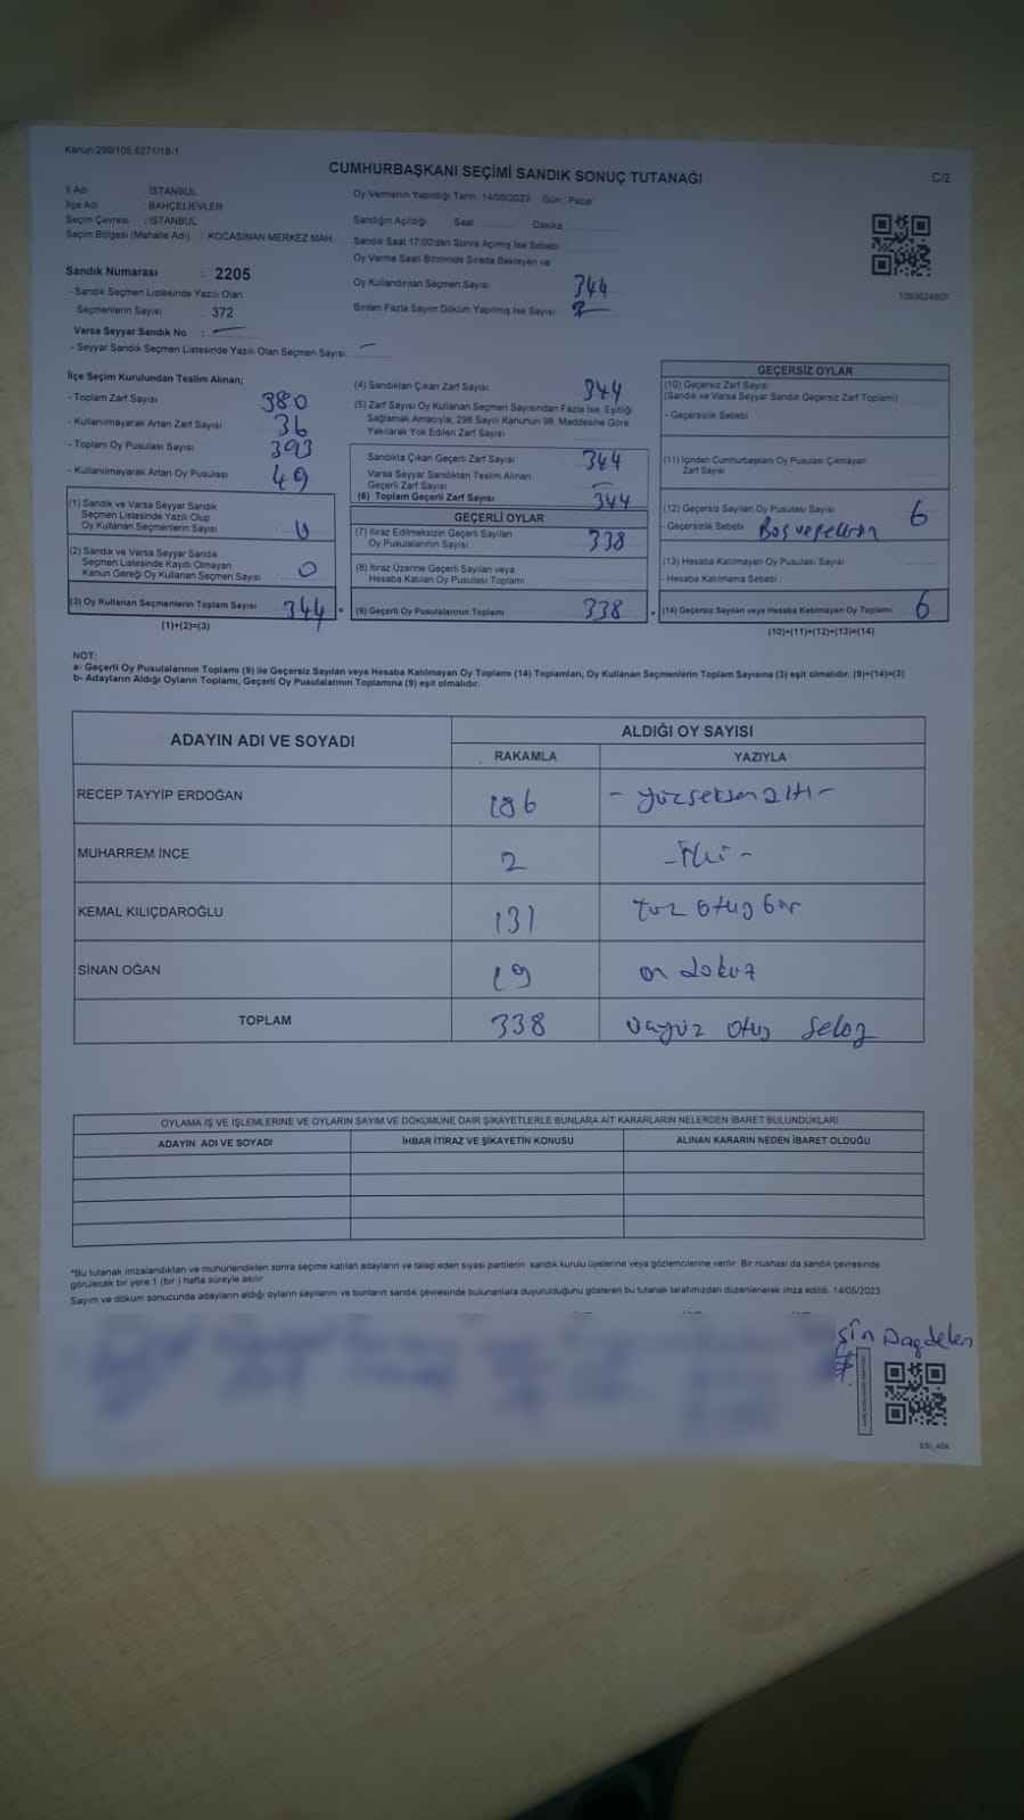 Kanun:298/105,6271/18-1
CUMHURBAŞKANI SEÇİMİ SANDIK SONUÇ TUTANAĞI
C/2
İl Adı : İSTANBUL
İlçe Adı : BAHÇELİEVLER
Seçim Çevresi : İSTANBUL
Seçim Bölgesi (Mahalle Adı) : KOCASİNAN MERKEZ MAH.
Oy Vermenin Yapıldığı Tarih: 14/05/2023 Gün: Pazar
Sandığın Açıldığı Saat Dakika
Sandık Saat 17:00'dan Sonra Açılmış İse Sebebi
Oy Verme Saati Bitiminde Sırada Bekleyen ve
Oy Kullandırılan Seçmen Sayısı 344
Birden Fazla Sayım Döküm Yapılmış İse Sayısı
Sandık Numarası : 2205
- Sandık Seçmen Listesinde Yazılı Olan
Seçmenlerin Sayısı 372
Varsa Seyyar Sandık No : —
- Seyyar Sandık Seçmen Listesinde Yazılı Olan Seçmen Sayısı —
İlçe Seçim Kurulundan Teslim Alınan;
- Toplam Zarf Sayısı 380
- Kullanılmayarak Artan Zarf Sayısı 36
- Toplam Oy Pusulası Sayısı 393
- Kullanılmayarak Artan Oy Pusulası 49
(1) Sandık ve Varsa Seyyar Sandık
Seçmen Listesinde Yazılı Olup
Oy Kullanan Seçmenlerin Sayısı
(2) Sandık ve Varsa Seyyar Sandık
Seçmen Listesinde Kayıtlı Olmayan
Kanun Gereği Oy Kullanan Seçmen Sayısı 0
(3) Oy Kullanan Seçmenlerin Toplam Sayısı 344
(1)+(2)=(3)
(4) Sandıktan Çıkan Zarf Sayısı 344
(5) Zarf Sayısı Oy Kullanan Seçmen Sayısından Fazla İse, Eşitliği
Sağlamak Amacıyla, 298 Sayılı Kanunun 98. Maddesine Göre
Yakılarak Yok Edilen Zarf Sayısı
Sandıkta Çıkan Geçerli Zarf Sayısı 344
Varsa Seyyar Sandıktan Teslim Alınan
Geçerli Zarf Sayısı —
(6) Toplam Geçerli Zarf Sayısı 344
GEÇERLİ OYLAR
(7) İtiraz Edilmeksizin Geçerli Sayılan
Oy Pusulalarının Sayısı 338
(8) İtiraz Üzerine Geçerli Sayılan veya
Hesaba Katılan Oy Pusulası Toplamı
(9) Geçerli Oy Pusulalarının Toplamı 338
GEÇERSİZ OYLAR
(10) Geçersiz Zarf Sayısı
(Sandık ve Varsa Seyyar Sandık Geçersiz Zarf Toplamı)
- Geçersizlik Sebebi
(11) İçinden Cumhurbaşkanı Oy Pusulası Çıkmayan
Zarf Sayısı
(12) Geçersiz Sayılan Oy Pusulası Sayısı 6
- Geçersizlik Sebebi
(13) Hesaba Katılmayan Oy Pusulası Sayısı
- Hesaba Katılmama Sebebi
(14) Geçersiz Sayılan veya Hesaba Katılmayan Oy Toplamı 6
(10)+(11)+(12)+(13)=(14)
NOT:
a- Geçerli Oy Pusulalarının Toplamı (9) ile Geçersiz Sayılan veya Hesaba Katılmayan Oy Toplamı (14) Toplamları, Oy Kullanan Seçmenlerin Toplam Sayısına (3) eşit olmalıdır. (9)+(14)=(3)
b- Adayların Aldığı Oyların Toplamı, Geçerli Oy Pusulalarının Toplamına (9) eşit olmalıdır.
ADAYIN ADI VE SOYADI
ALDIĞI OY SAYISI
RAKAMLA YAZIYLA
RECEP TAYYİP ERDOĞAN 186 - yüzseksenaltı -
MUHARREM İNCE 2 - iki -
KEMAL KILIÇDAROĞLU 131 yüz otuz bir
SİNAN OĞAN 19 on dokuz
TOPLAM 338 üçyüz otuz sekiz
OYLAMA İŞ VE İŞLEMLERİNE VE OYLARIN SAYIM VE DÖKÜMÜNE DAİR ŞİKAYETLERLE BUNLARA AİT KARARLARIN NELERDEN İBARET BULUNDUKLARI
ADAYIN ADI VE SOYADI İHBAR İTİRAZ VE ŞİKAYETİN KONUSU ALINAN KARARIN NEDEN İBARET OLDUĞU
*Bu tutanak imzalandıktan ve mühürlendikten sonra seçime katılan adayların ve talep eden siyasi partilerin sandık kurulu üyelerine veya gözlemcilerine verilir. Bir nüshası da sandık çevresinde
görülecek bir yere 1 (bir) hafta süreyle asılır.
Sayım ve döküm sonucunda adayların aldığı oyların sayılarını ve bunların sandık çevresinde bulunanlara duyurulduğunu gösteren bu tutanak tarafımızdan düzenlenerek imza edildi. 14/05/2023
şin Dağdelen